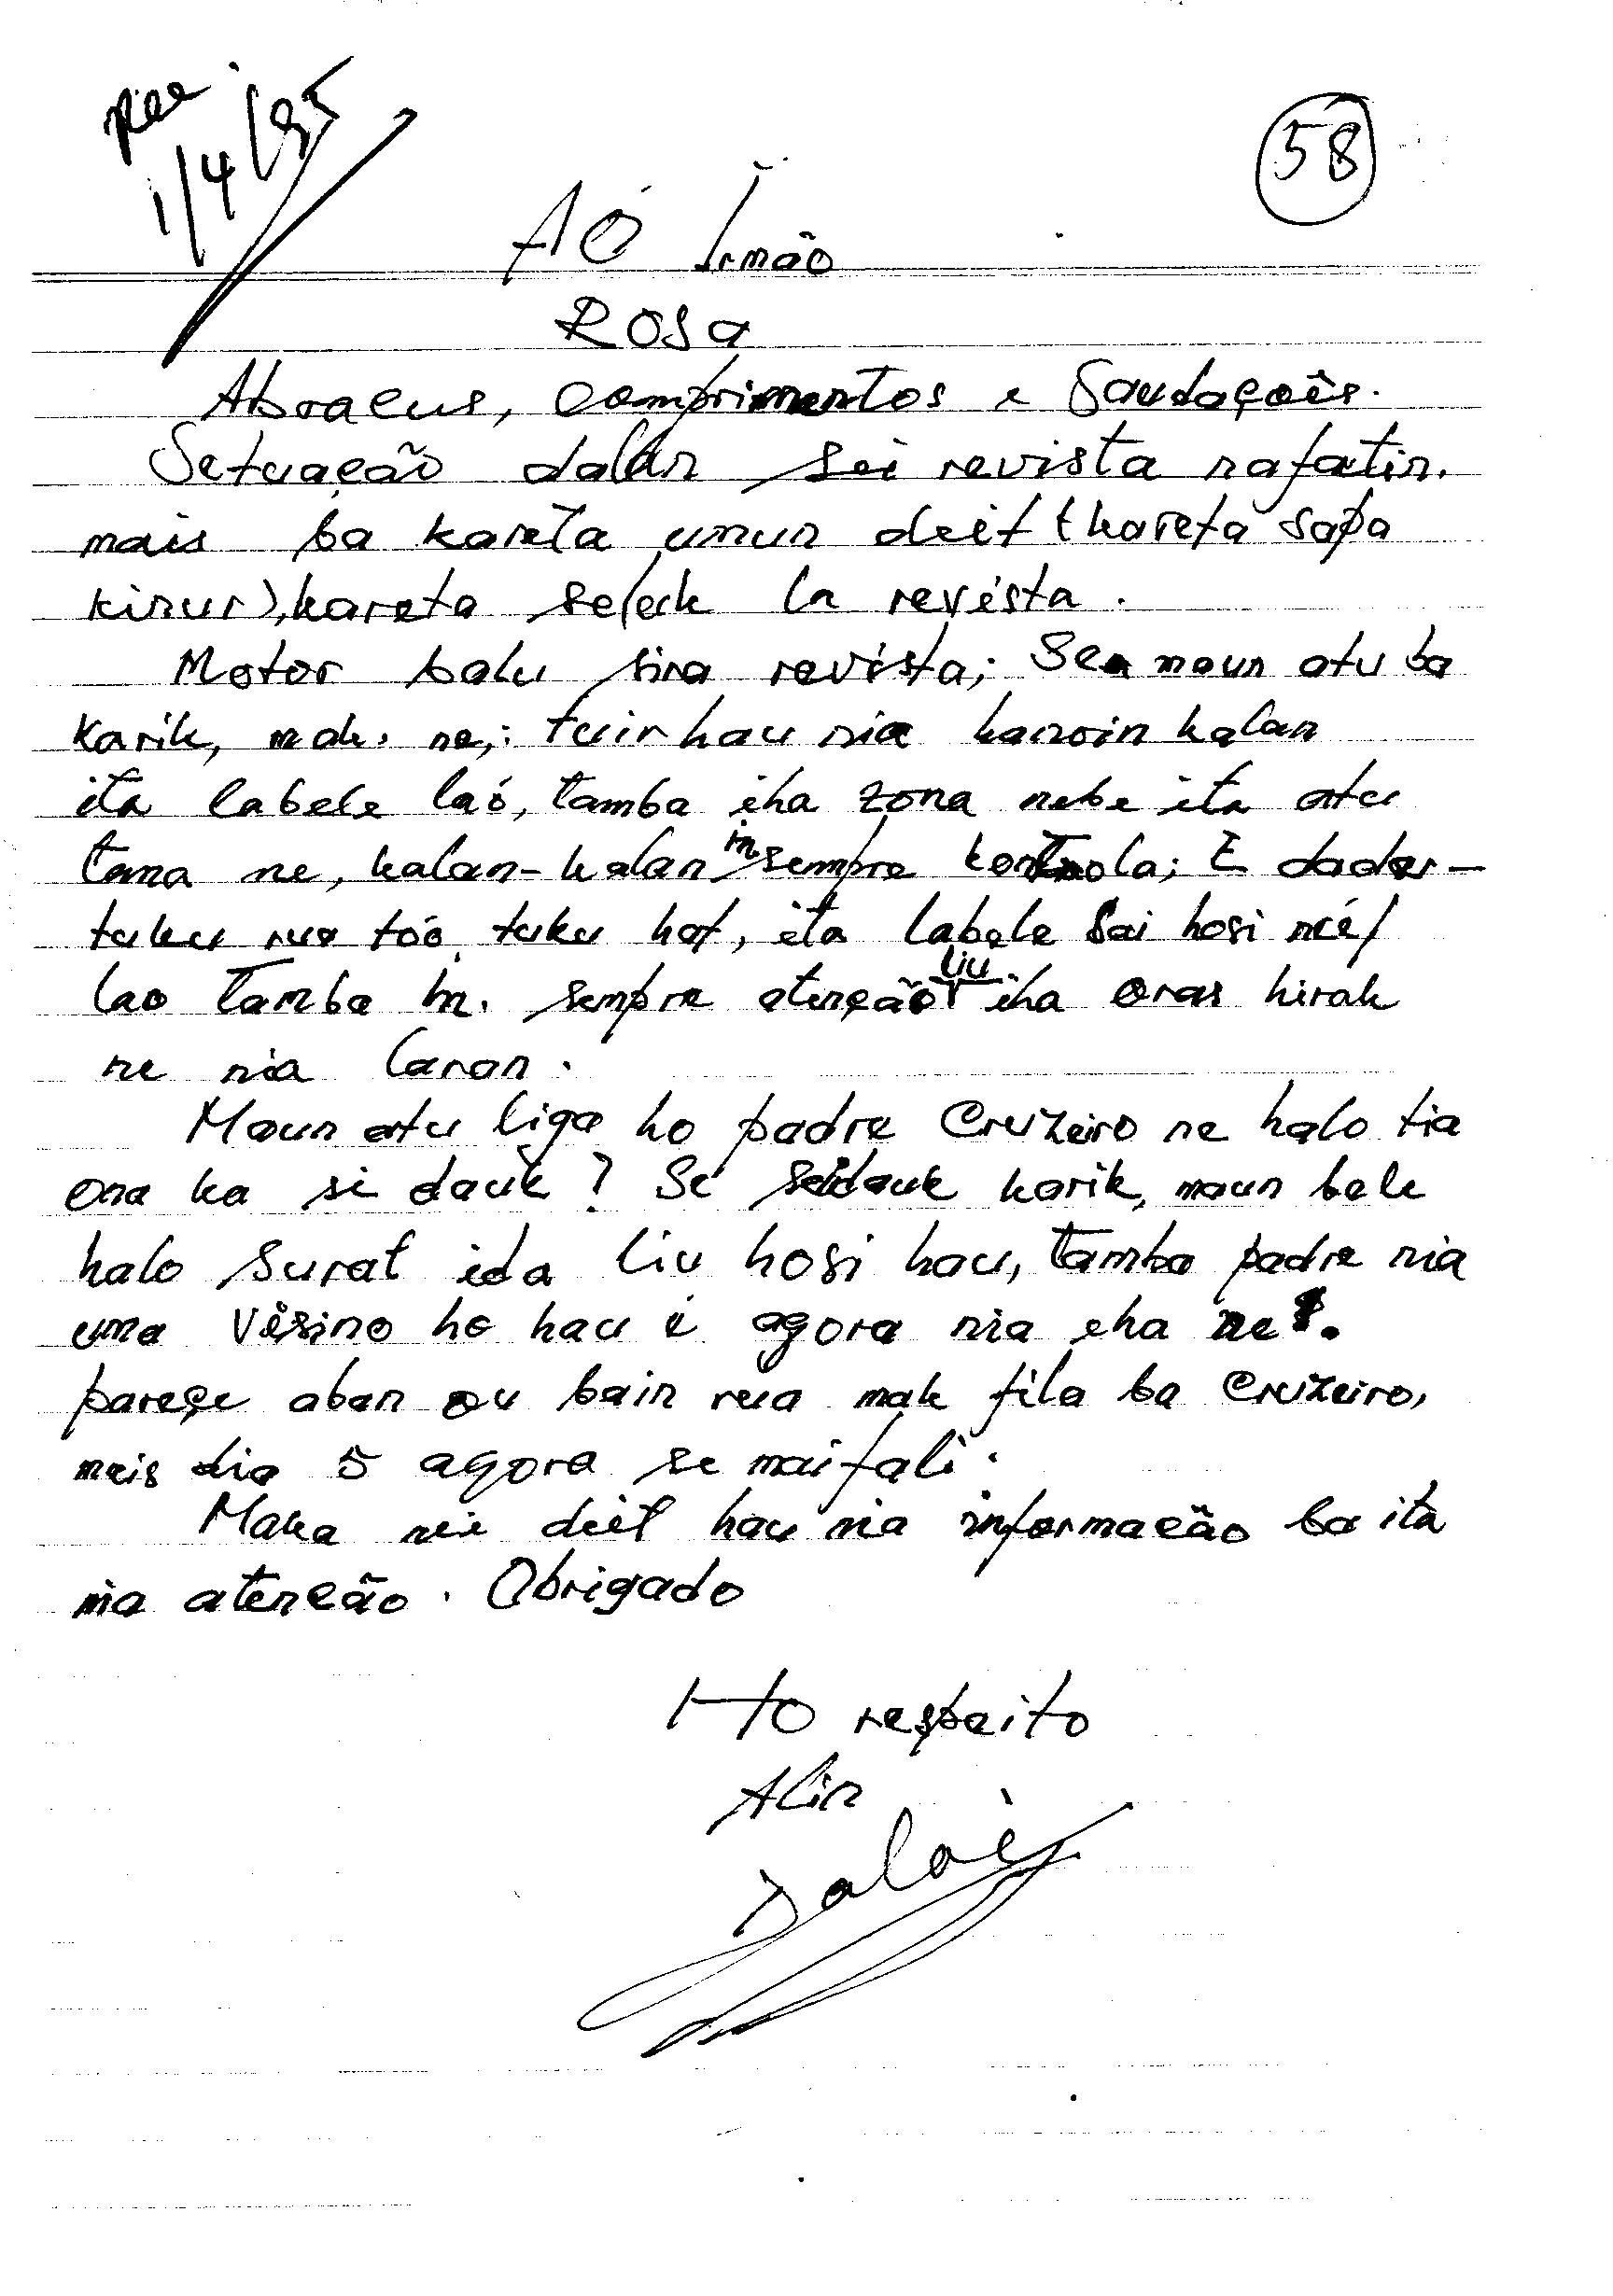 Rec
1/4/95
58
AO Irmão
ROSA
Abracus, comprimentos e Saudaçoês.
Setuação dalan sei revista nafatin.
mais ba kareta umun deit (kareta sapa
kinur), kareta seluk la revista.
Motor balu sira revista; Se maun atu ba
karik, mak ne; tuir hau nia hanoin kalan
ita labele laó, tamba iha zona nebe ita atu
tama ne, kalan-kalan in. sempre kontrola; E dader-
tuku rua toó tuku hat, ita labele sai hosi nié/
lao tamba in. sempre atenção liu iha oras hirak
ne nia laran.
Maun atu liga ho padre Cruzeiro ne halo tia
ona ka si dauk? Se seidauk karik, maun bele
halo surat ida liu hosi hau, tamba padre nia
uma vísino ho hau e agora nia iha ne.
pareçe aban ou bain rua mak fila ba Cruzeiro,
mais dia 5 agora se mai fali.
Maka nie deit hau nia informacão ba ita
nia atencão. Obrigado
Ho respeito
Alin